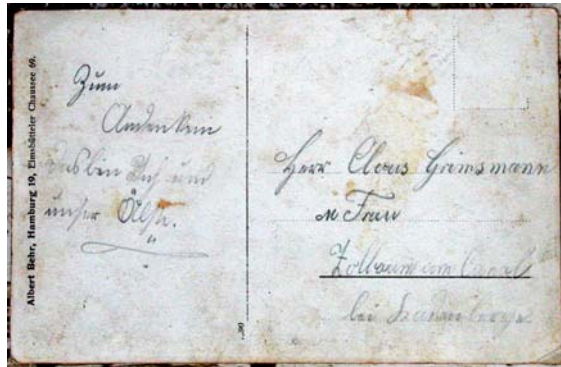 Albert Behr, Hamburg 19, Eimsbütteler Chaussee 69.
Zum
Andenken
das bin Ich und
unser Älste.
Herr Claus Grimsmann
u Frau
Zollbaum am Canal
bei